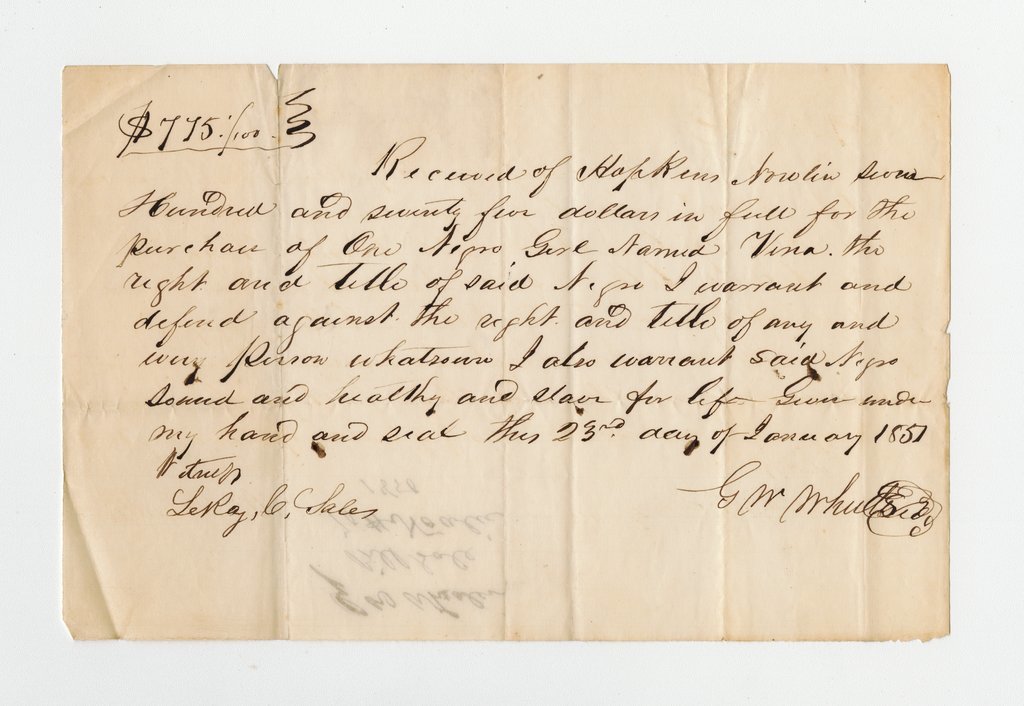 $775./100
Received of Hopkins Nowlin seven
Hundred and seventy five dollars in full for the
purchase of One Negro Girl Named Vina. the
right and title of said Negro I warrant and
defend against the right and title of any and
every person whatsoever I also warrant said Negro
sound and healthy and slave for life Given under
my hand and seal this 23rd day of January 1851
Witness
LeRoy, C, Sales
G W Wheeler
Bill Sale